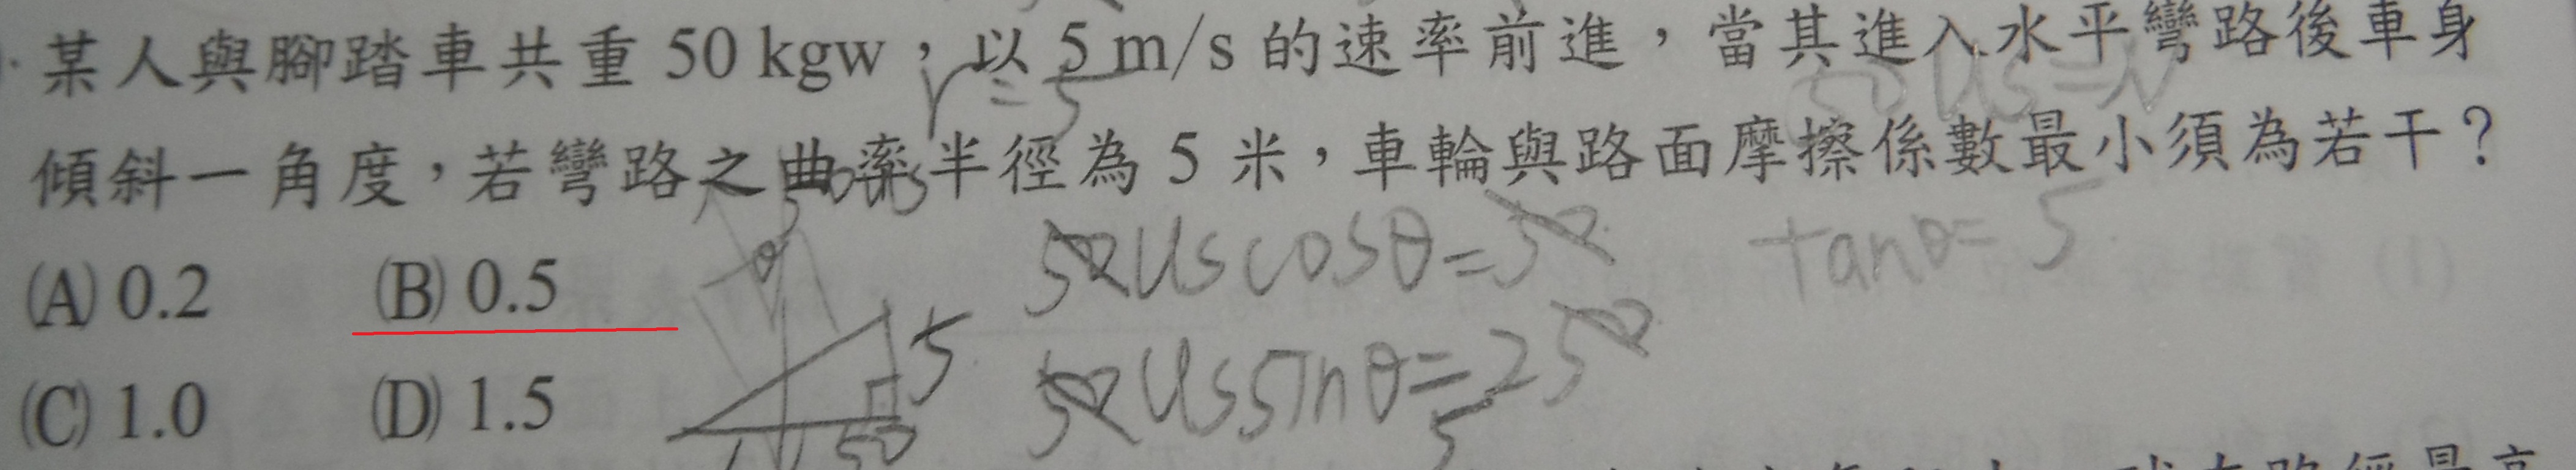 某人與腳踏車共重 50 kgw，以 5 m/s 的速率前進，當其進入水平彎路後車身
傾斜一角度，若彎路之曲率半徑為 5 米，車輪與路面摩擦係數最小須為若干？
(A) 0.2 (B) 0.5
(C) 1.0 (D) 1.5
r=5
50 us=N
50us
θ
5
50
50 us cosθ=50
50 us sinθ=250
5
tanθ=5